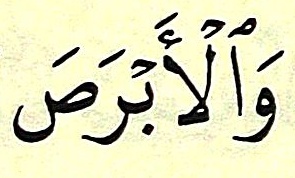 وَٱلۡأَبۡرَصَ